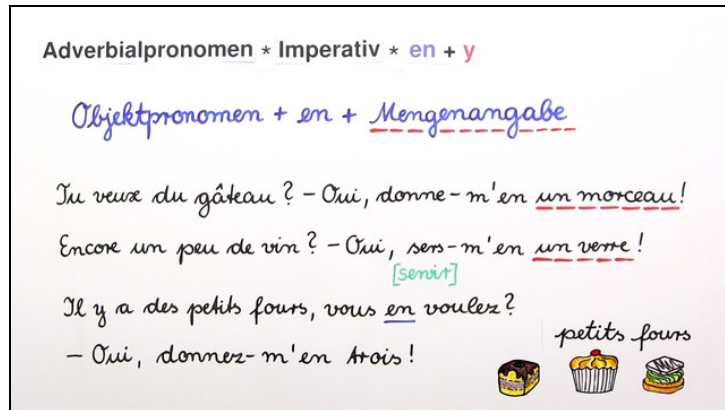 Adverbialpronomen * Imperativ * en + y
Objektpronomen + en + Mengenangabe
Tu veux du gâteau ? – Oui, donne-m'en un morceau !
Encore un peu de vin ? – Oui, sers-m'en un verre !
[servir]
Il y a des petits fours, vous en voulez ?
– Oui, donnez-m'en trois !
petits fours